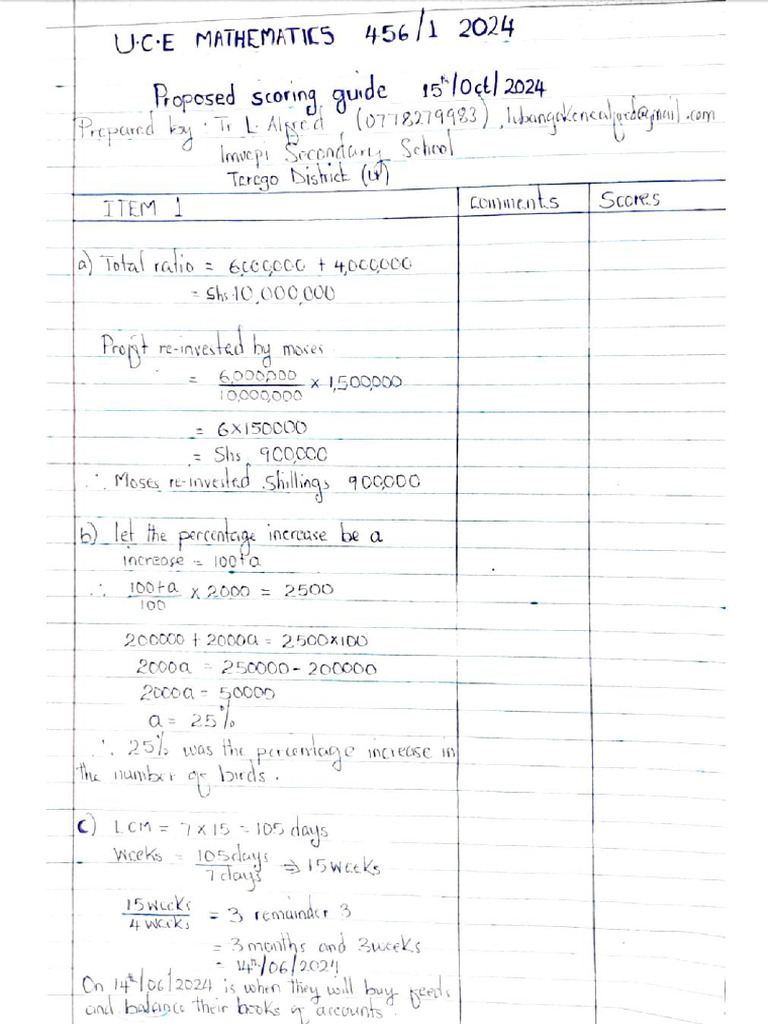 U.C.E MATHEMATICS 456/1 2024
Proposed scoring guide 15th/Oct/2024
Prepared by: Tr L. Alfred (0778279983), lubangakenealfred@gmail.com
Imvepi Secondary School
Terego District (W)
ITEM 1 comments Scores
a) Total ratio = 6,000,000 + 4,000,000
= Shs.10,000,000
Profit re-invested by moses
= 6,000,000/10,000,000 × 1,500,000
= 6×150000
= Shs. 900,000
∴ Moses re-invested shillings 900,000
b) let the percentage increase be a
increase = 100+a
∴ 100+a/100 × 2000 = 2500
200000 + 2000a = 2500×100
2000a = 250000 - 200000
2000a = 50000
a = 25%
∴ 25% was the percentage increase in
the number of birds.
c) LCM = 7×15 = 105 days
Weeks = 105days/7days ⇒ 15 weeks
15weeks/4weeks = 3 remainder 3
= 3 months and 3 weeks
= 14th/06/2024
On 14th/06/2024 is when they will buy feeds
and balance their books of accounts.